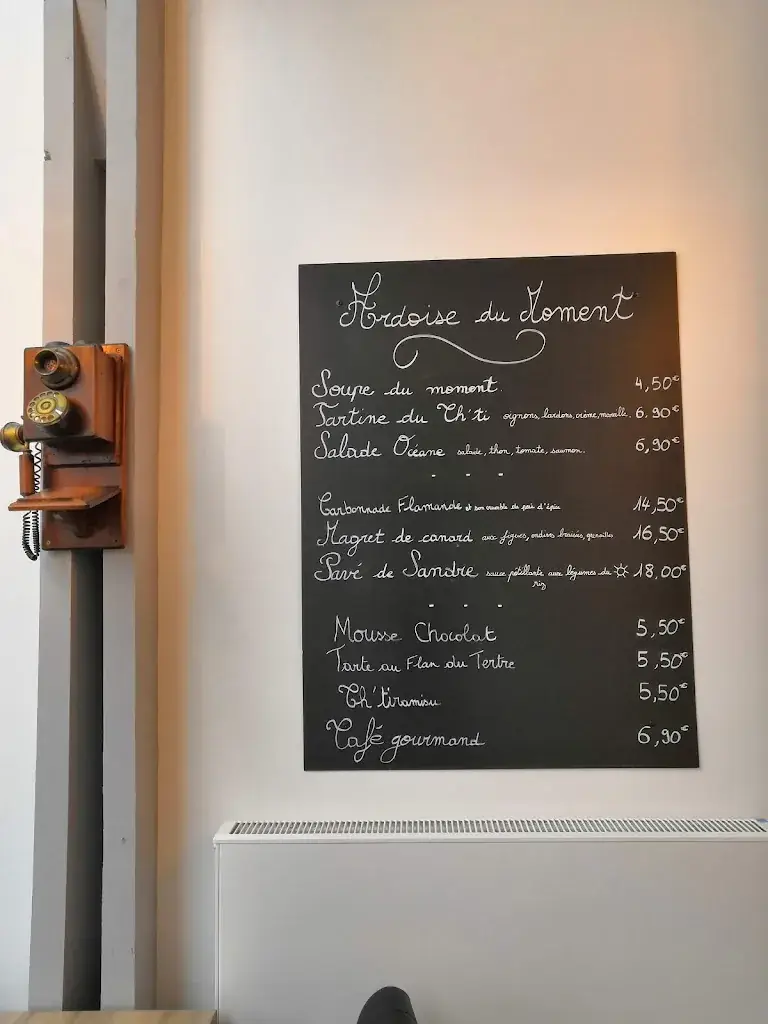 Ardoise du Moment
Soupe du moment. 4,50€
Tartine du Ch'ti oignons, lardons, crème, maroille. 6,90€
Salade Océane salade, thon, tomate, saumon. 6,90€
- - -
Carbonnade Flamande et son crumble de pain d'épice 14,50€
Magret de canard aux figues, endives braisées, grenailles 16,50€
Pavé de Sandre sauce pétillante aux légumes du ☼ 18,00€
riz
- - -
Mousse Chocolat 5,50€
Tarte au Flan du Tertre 5,50€
Ch'tiramisu 5,50€
Café gourmand 6,90€